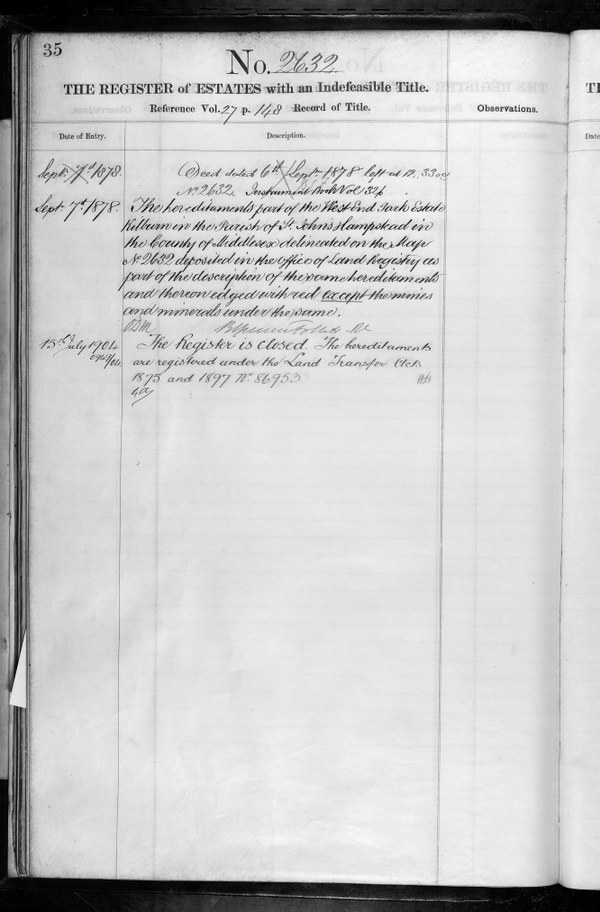 35
No. 2632
THE REGISTER of ESTATES with an Indefeasible Title.
Reference Vol. 27 p. 148 Record of Title.
Observations.
Date of Entry.
Description.
Sept. 7th 1878.
Deed dated 6th Sept. 1878 left at 12.33
No 2632. Instrument Book Vol 32
Sept. 7th 1878.
The hereditaments part of the West End Park Estate
Kilburn in the Parish of St. John's Hampstead in
the County of Middlesex delineated on the Map
No 2632 deposited in the office of Land Registry as
part of the description of the same hereditaments
and thereon edged with red except the mines
and minerals under the same.
15th July 1904
The Register is closed. The hereditaments
are registered under the Land Transfer Acts
1875 and 1897 No. 86953